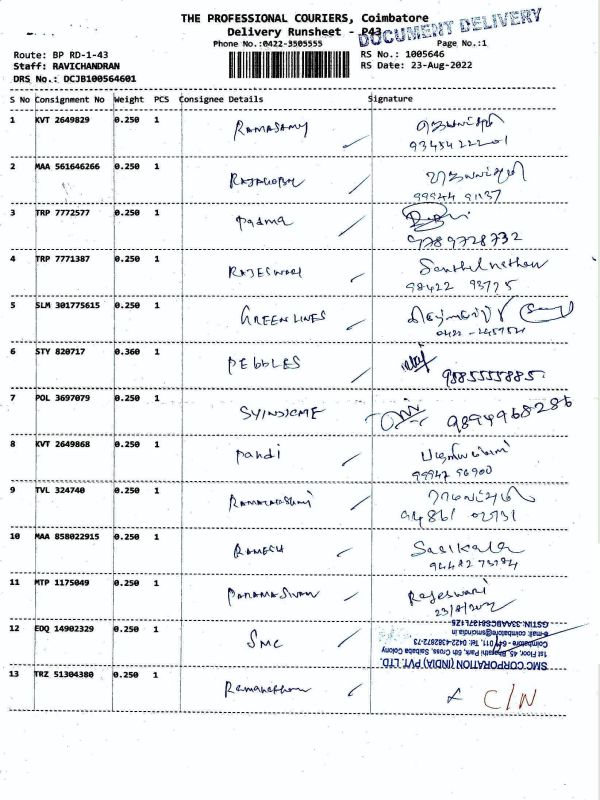 THE PROFESSIONAL COURIERS, Coimbatore
Delivery Runsheet - P43
DOCUMENT DELIVERY
Phone No.:0422-3505555
Page No.:1
Route: BP RD-1-43
RS No.: 1005646
Staff: RAVICHANDRAN
RS Date: 23-Aug-2022
DRS No.: DCJB100564601
S No Consignment No Weight PCS Consignee Details Signature
1 KVT 2649829 0.250 1 RAMASAMY
2 MAA 561646266 0.250 1 RAJAGOPAL
99944 91137
3 TRP 7772577 0.250 1 Padma
9789728732
4 TRP 7771387 0.250 1 RAJESWARI Senthilnathan
98422 93775
5 SLM 301775615 0.250 1 GREEN LINES
6 STY 820717 0.360 1 PEBBLES
9885555885
7 POL 3697079 0.250 1
9894968286
8 KVT 2649868 0.250 1 Pandi
9 TVL 324740 0.250 1
94861 02731
10 MAA 858022915 0.250 1 RAMESH Sasikala
11 MTP 1175049 0.250 1 Rajeswari
23/8/2022
12 EDQ 14902329 0.250 1 SMC
SMC CORPORATION (INDIA) PVT. LTD.
1st Floor, 45, Bharathi Park, 6th Cross, Saibaba Colony
Coimbatore - 641 011, Tel: 0422-4382872-73
e-mail: coimbatore@smcindia.in
13 TRZ 51304380 0.250 1 Ramanathan C/N